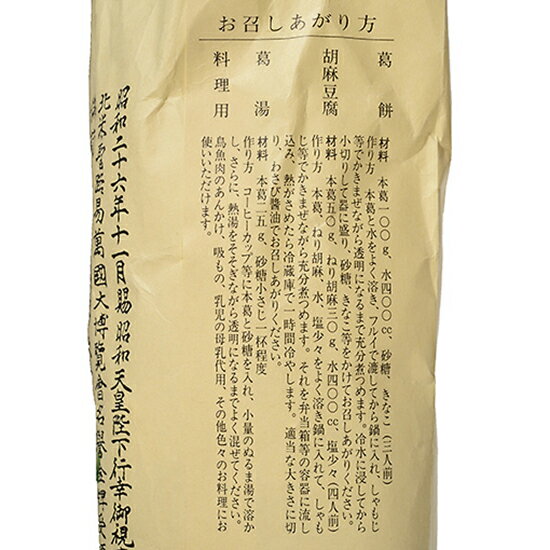 お召しあがり方
葛餅
材料 本葛一〇〇g、水四〇〇cc、砂糖、きなこ(三人前)
作り方 本葛と水をよく溶き、フルイで漉してから鍋に入れ、しゃもじ
等でかきまぜながら透明になるまで充分煮つめます。冷水に浸してから
小切りして器に盛り、砂糖、きなこ等をかけてお召しあがりください。
胡麻豆腐
材料 本葛五〇g、ねり胡麻三〇g、水四〇〇cc、塩少々(四人前)
作り方 本葛、ねり胡麻、水、塩少々をよく溶き鍋に入れて、しゃも
じ等でかきまぜながら充分煮つめます。それを弁当箱等の容器に流し
込み、熱がさめたら冷蔵庫で一時間冷やします。適当な大きさに切
り、わさび醬油でお召しあがりください。
葛湯
材料 本葛二五g、砂糖小さじ一杯程度
作り方 コーヒーカップ等に本葛と砂糖を入れ、小量のぬるま湯で溶か
し、さらに、熱湯をそそぎながら透明になるまでよく混ぜてください。
料理用
鳥魚肉のあんかけ、吸もの、乳児の母乳代用、その他色々のお料理にお
使いいただけます。
昭和二十六年十一月賜昭和天皇陛下行幸御視
北米聖路易萬國大博覧會名譽金牌受